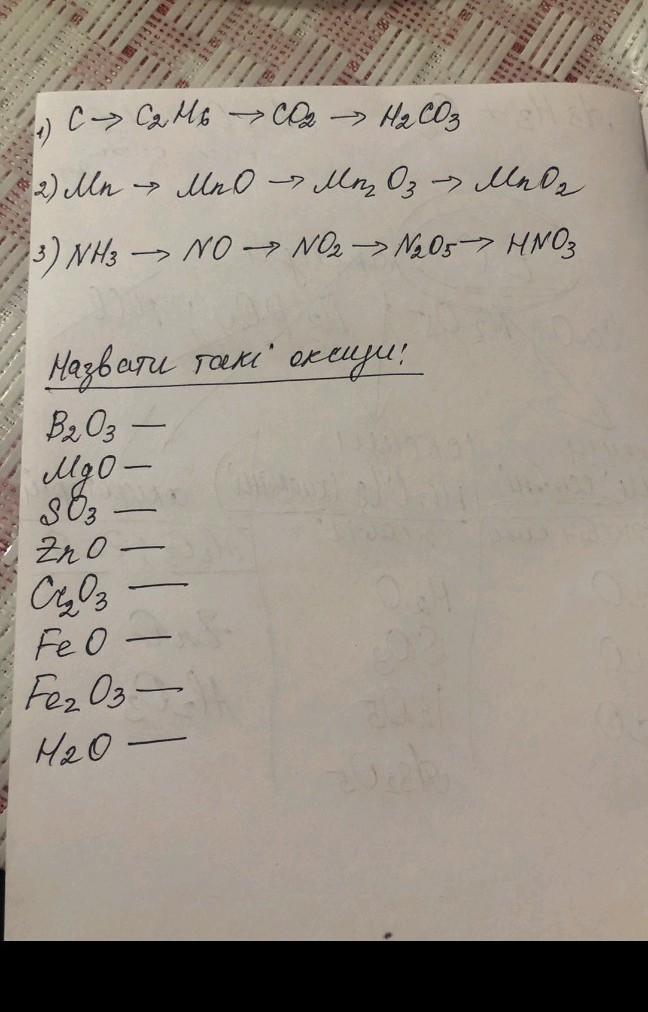 1) C → C2H6 → CO2 → H2CO3
2) Mn → MnO → Mn2O3 → MnO2
3) NH3 → NO → NO2 → N2O5 → HNO3
Назвати такі оксиди:
B2O3 —
MgO —
SO3 —
ZnO —
Cr2O3 —
FeO —
Fe2O3 —
H2O —